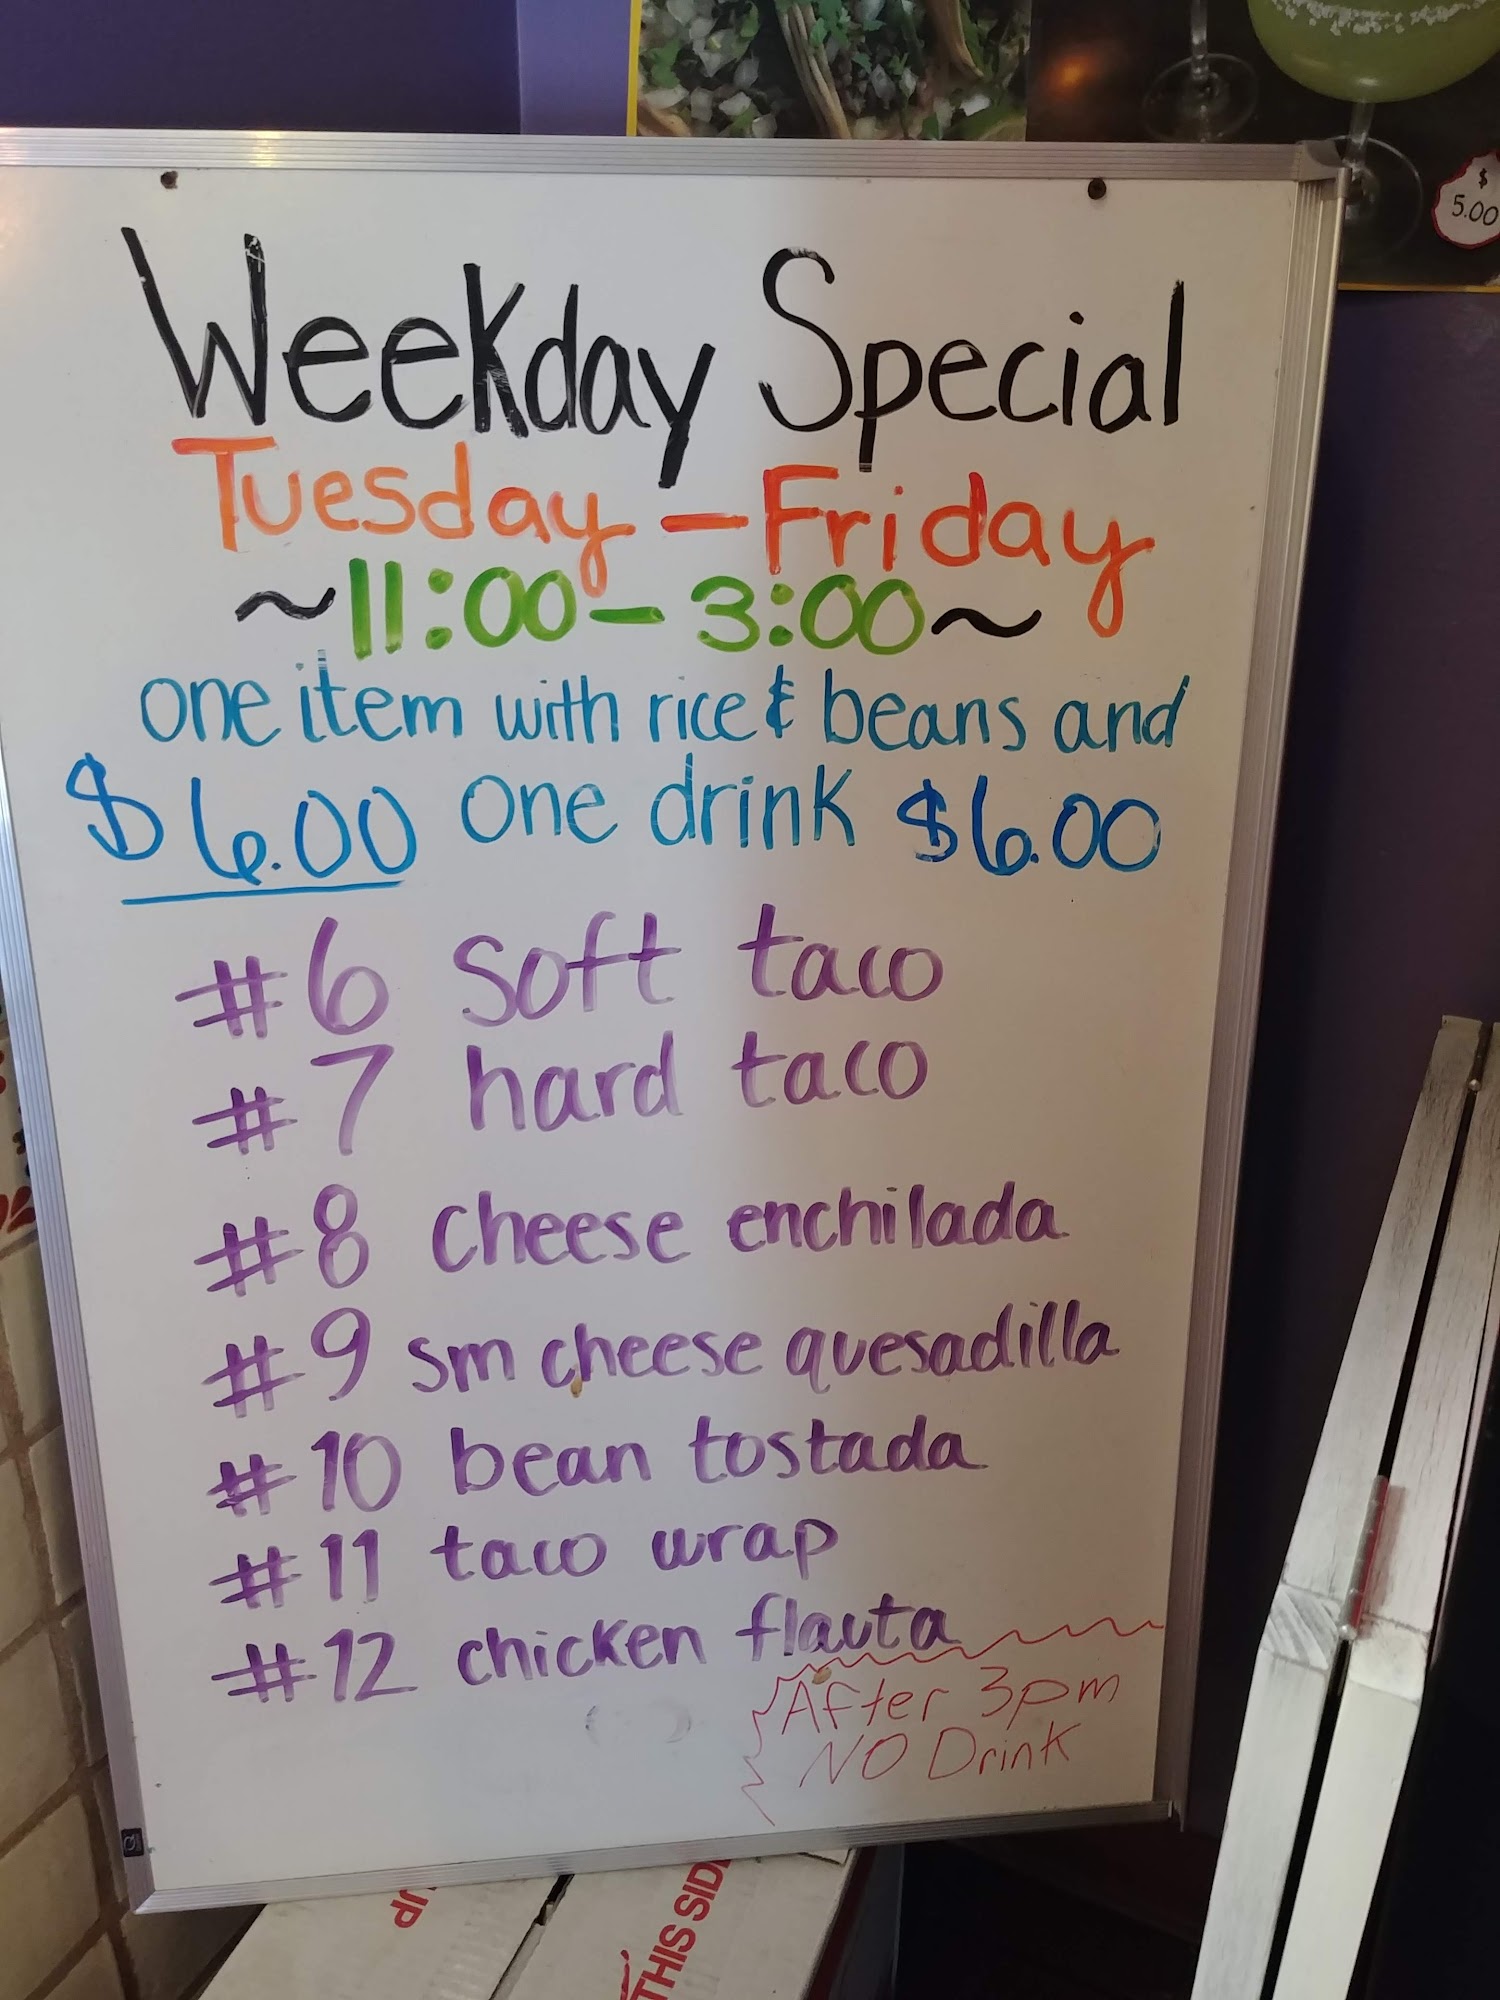 $
5.00
Weekday Special
Tuesday - Friday
~11:00 - 3:00~
one item with rice & beans and
$6.00 one drink $6.00
#6 soft taco
#7 hard taco
#8 cheese enchilada
#9 sm cheese quesadilla
#10 bean tostada
#11 taco wrap
#12 chicken flauta
After 3pm
NO Drink
UP
THIS SIDE